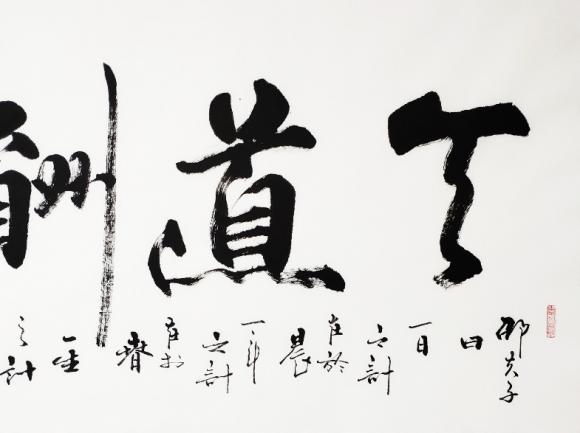 天道酬
邵夫子曰一日之計在於晨一年之計在於春一生之計